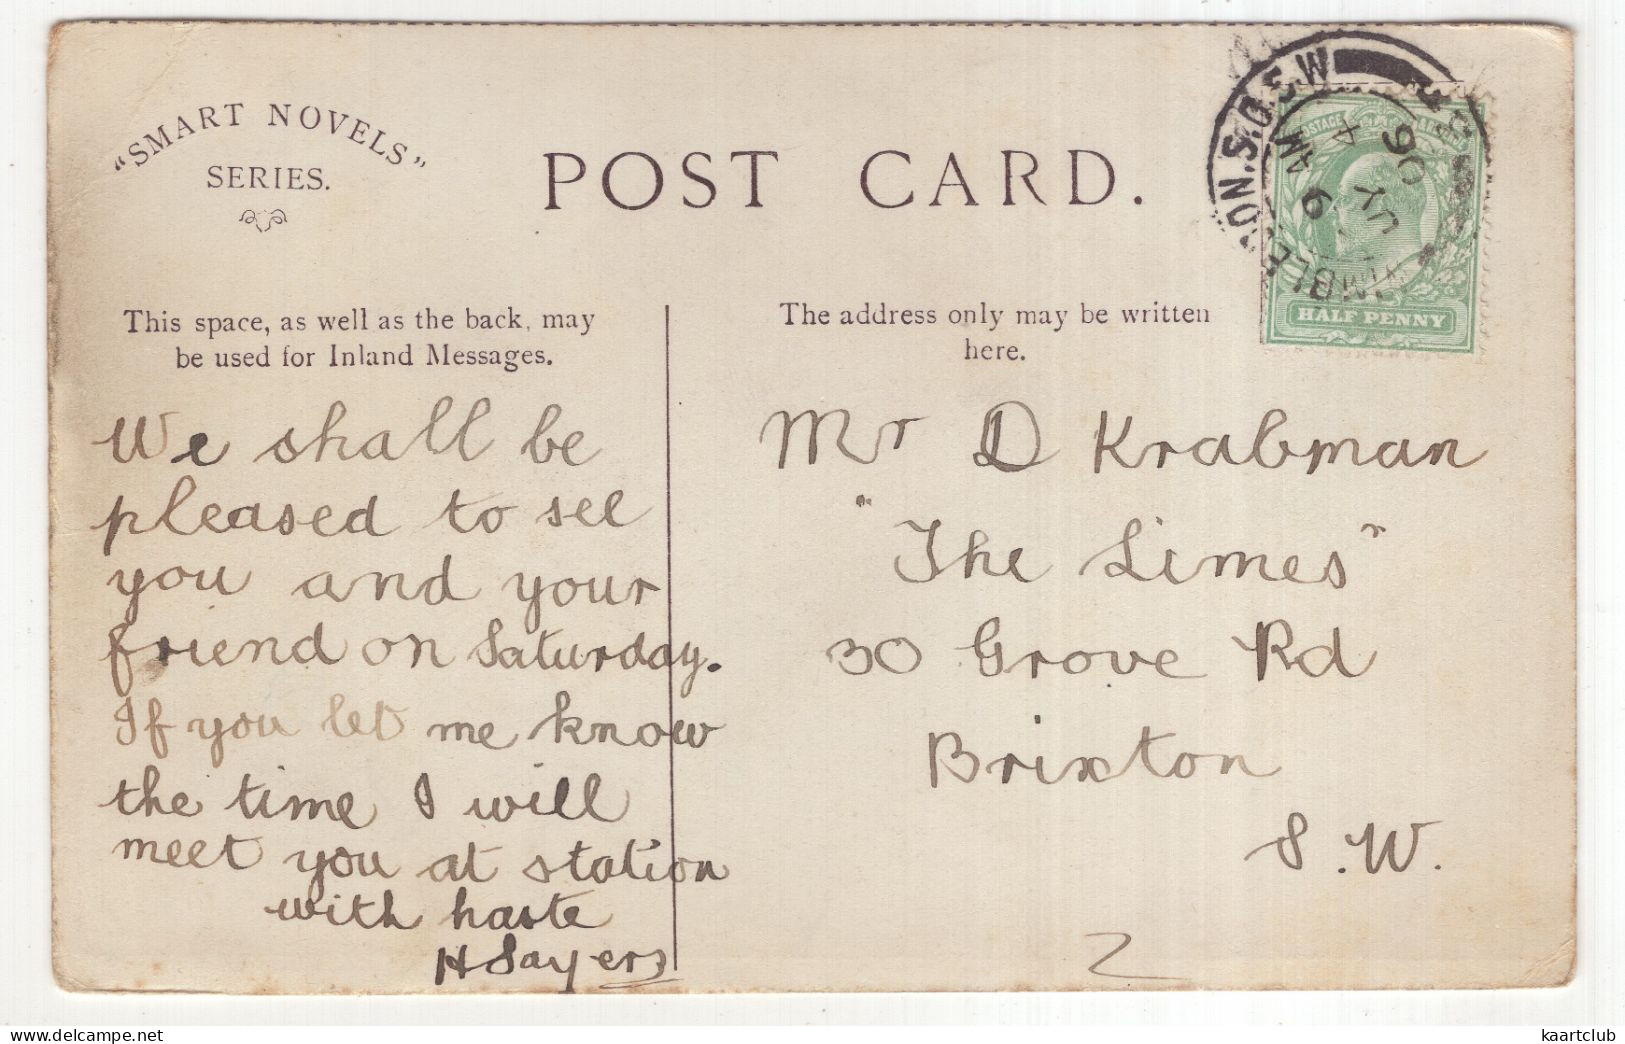 "SMART NOVELS"
SERIES.
POST CARD.
This space, as well as the back, may
be used for Inland Messages.
The address only may be written
here.
WIMBLEDON. S.O. S.W
9 AM
JY 4
06
HALF PENNY
We shall be
pleased to see
you and your
friend on Saturday.
If you let me know
the time I will
meet you at station
with haste
H Sayers
Mr D Krabman
"The Limes"
30 Grove Rd
Brixton
S.W.
kaartclub